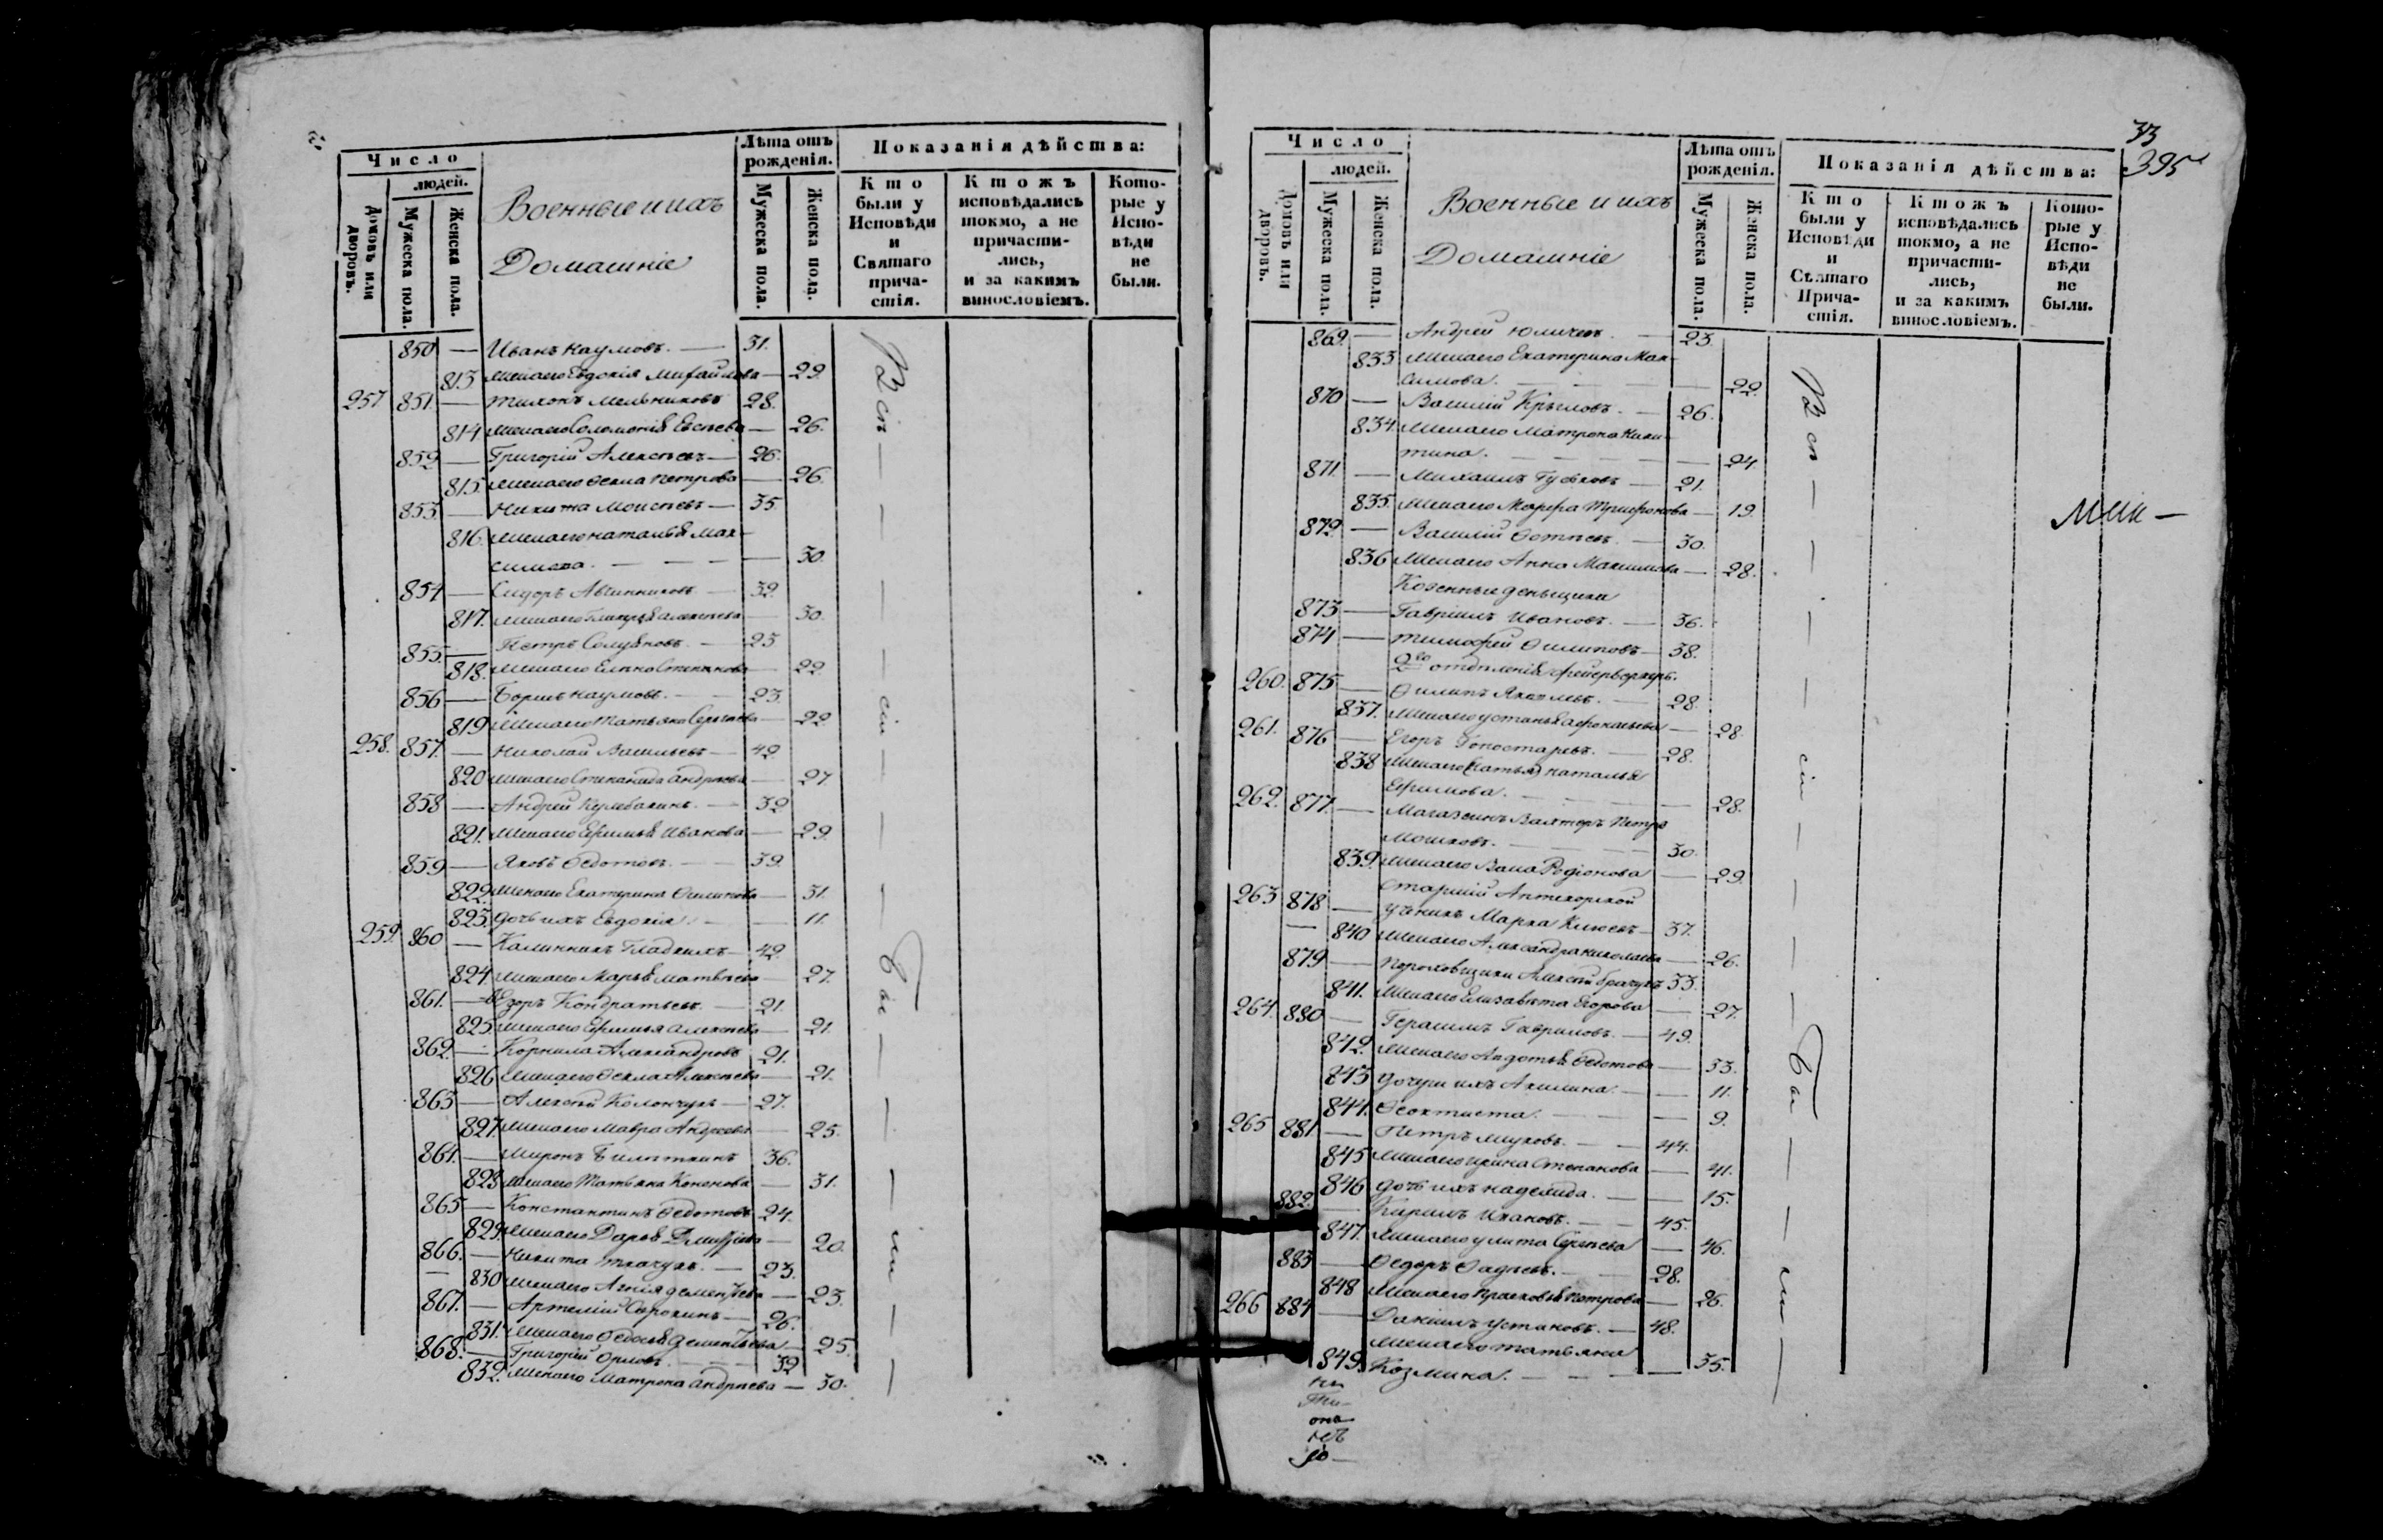 Число
людей.
Домовъ или дворовъ.
Мужеска пола.
Женска пола.
Военные и ихъ
Домашніе
Лѣта отъ
рожденія.
Мужеска пола.
Женска пола.
Показанія дѣйства:
Кто
были у
Исповѣди
и
Святаго
прича-
стія.
Ктожъ
исповѣдались
токмо, а не
причасти-
лись,
и за какимъ
винословіемъ.
Кото-
рые у
Испо-
вѣди
не
были.
850 — Иванъ Наумовъ. — 31.
813 жена его Евдокія Михайлова — 29.
257 851 — Тихонъ Мельниковъ 28.
814 жена его Соломонія Евсѣева — 26.
852 — Григорій Алексѣевъ — 26.
815 жена его Ѳекла Петрова — 26.
853 — Никита Моисѣевъ — 35.
816. жена его Наталья Мак-
симова. — — — — 30.
854 — Сидоръ Авчинниковъ — 32.
817. жена его Алексѣева — 30.
855 — Петръ Голубковъ. — 25
818. жена его Елена Степанова — 22.
856 — Борисъ Наумовъ. — 23.
819 жена его Татьяна Сергѣева — 22
258. 857. — Николай Васильевъ — 42.
820 жена его Степанида Андреева — 27.
858 — Андрей Кулебакинъ. — 32
821. жена его Ефимья Иванова — 29.
859 — Яковъ Ѳедотовъ. — 39.
822. жена его Екатерина Филипова — 31.
823. дочь ихъ Евдокія. — 11.
259. 860 — Калинникъ Гладкихъ — 42.
824. жена его Марья Матвѣева — 27.
861. — Егоръ Кондратьевъ. — 21.
825 жена его Ефимья Алексѣева — 21.
862. — Корнила Александровъ 21.
826 жена его Ѳекла Алексѣева — 21.
863 — Алексѣй — 27.
827. жена его Мавра Андреева — 25.
864. — Миронъ 36.
828 жена его Татьяна Кононова — 31.
865 — Константинъ Ѳедотовъ 24.
829. жена его Дарья Дмитріева — 20.
866. — Никита Ткачукъ. — 23.
830 жена его Агнія Дементьева — 23.
867. — Артемій Сорокинъ — 26.
831. жена его Ѳедосья Дементьева — 25.
868. — Григорій Орловъ. — 32
832. жена его Матрона Андреева — 30.
Всѣ — сіи — бы — ли —
33
395
Число
людей.
Домовъ или дворовъ.
Мужеска пола.
Женска пола.
Военные и ихъ
Домашніе
Лѣта отъ
рожденія.
Мужеска пола.
Женска пола.
Показанія дѣйства:
Кто
были у
Исповѣди
и
Святаго
Прича-
стія.
Ктожъ
исповѣдались
токмо, а не
причасти-
лись,
и за какимъ
винословіемъ.
Кото-
рые у
Испо-
вѣди
не
были.
869. — Андрей — 23.
833 жена его Екатерина Мак-
симова. — 22.
870 — Василій Крыловъ. — 26.
834. жена его Матрона Ники-
тина. — 24.
871. — Михаилъ Гусаковъ — 21.
835. жена его Марфа Трифонова — 19.
872. — Василій — 30.
836 жена его Анна Максимова — 28.
Козенные деньщики
873 — Гавріилъ Ивановъ. — 36.
874 — Тимофей Филиповъ — 38.
2го отдѣленія фейерверкеръ.
260. 875 — Филипъ Яковлевъ. — 28.
837. жена его Устинья Афонасьева — 28.
261. 876 — Егоръ — 28.
838 жена его Наталья
Ефимова. — 28.
262. 877. — Магазеинъ Вахтеръ Петръ
Мошковъ. — 30.
839. жена его Васа Родіонова — 29.
263 878 — старшій Аптекарской
ученикъ Марка Клюевъ — 37.
— 840 жена его Александра Николаева — 26.
879 — Пороховщики Алексѣй 33.
841. жена его Елизавета Егорова — 27.
264. 880 — Герасимъ Гавриловъ. — 49.
842. жена его Авдотья Ѳедотова — 33.
843 дочери ихъ Акилина. — 11.
844. Ѳеоктиста. — 9.
265 881 — Петръ Муховъ. — 44.
845 жена его Ирина Степанова — 41.
846 дочь ихъ Надежда. — 15.
882. — Кирилъ Ивановъ. — 45.
847. жена его Улита Сергѣева — 46.
883 — Ѳедоръ Фадѣевъ. — 28.
848 жена его Прасковья Петрова — 26.
266 884 — Даніилъ Устиновъ. — 48.
жена его Татьяна
849. Козмина. — 35.
Всѣ — сіи — бы — ли —